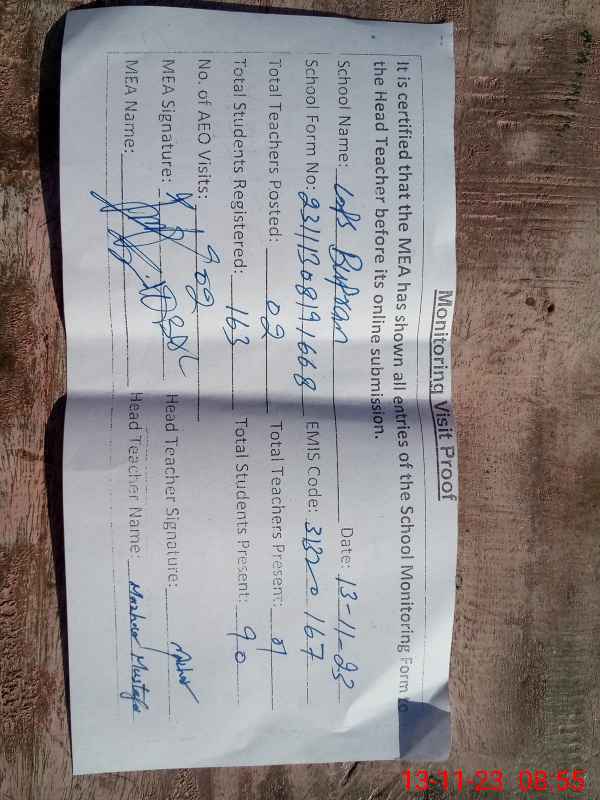 Monitoring Visit Proof
It is certified that the MEA has shown all entries of the School Monitoring Form to
the Head Teacher before its online submission.
School Name: Date: 13-11-23
School Form No: 23111308191668 EMIS Code: 31820167
Total Teachers Posted: 02 Total Teachers Present: 01
Total Students Registered: 163 Total Students Present: 90
No. of AEO Visits: 02
MEA Signature: Head Teacher Signature:
MEA Name: Head Teacher Name: Mustafa
13-11-23 08:55